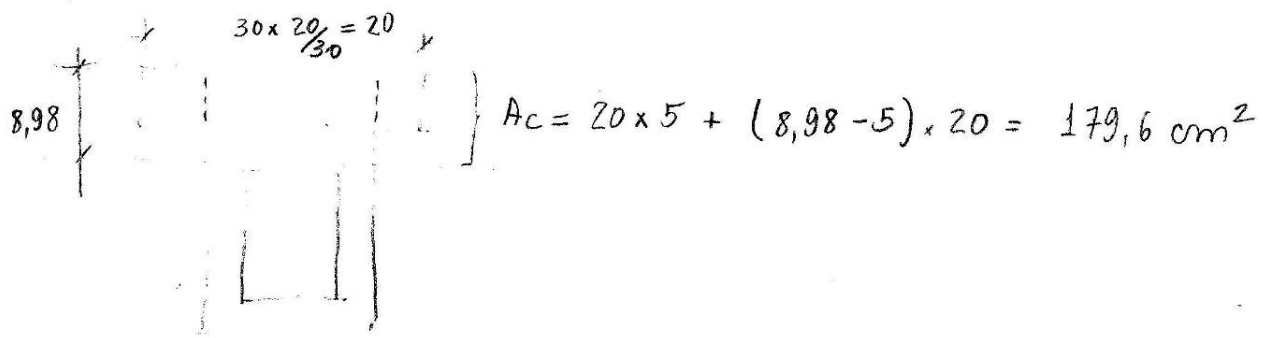 30 x 20/30 = 20
8,98
Ac = 20 x 5 + (8,98 - 5) . 20 = 179,6 cm²